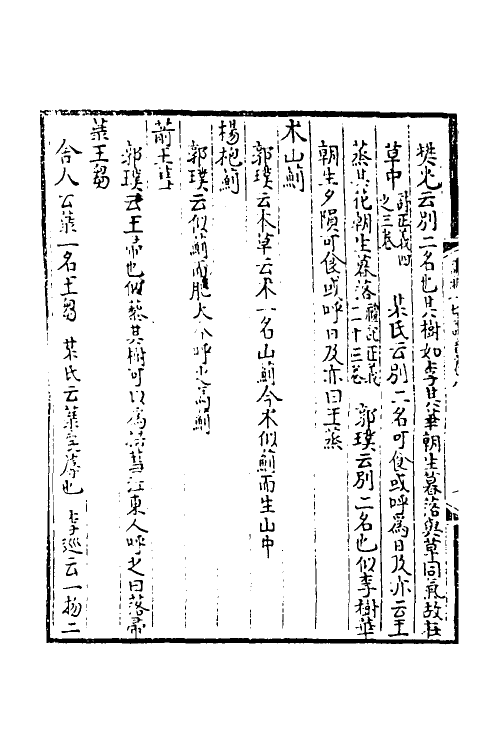 樊光云別二名也其樹如李其華朝生暮落與草同氣故在
草中詩正義四之三卷　某氏云別二名可食或呼爲日及亦云王
蒸其花朝生暮落禮記正義二十三卷　郭璞云別二名也似李樹華
朝生夕隕可食或呼日及亦曰王蒸
朮山薊
郭璞云本草云朮一名山薊今朮似薊而生山中
楊枹薊
郭璞云似薊而肥大今呼之馬薊
葥王彗
郭璞云王帚也似藜其樹可以爲埽彗江東人呼之曰落帚
菉王芻
舍人云菉一名王芻　某氏云菉鹿蓐也　李巡云一物二